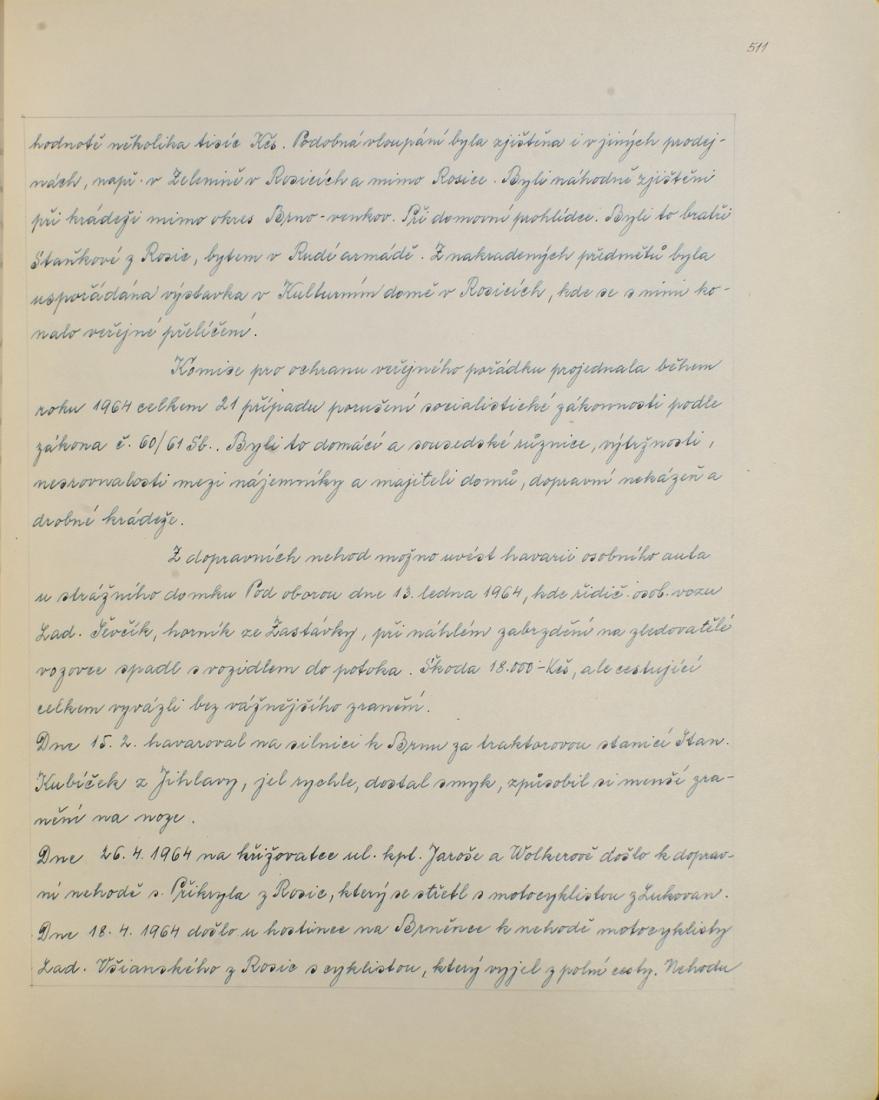 511
hodnotě několika tisíc Kčs. Podobná vloupání byla zjištěna i v jiných prodej-
nách, např. v Zelenině v Rosicích a mimo Rosice. Byli náhodně zjištěni
při krádeži mimo okres Brno-venkov. Při domovní prohlídce. Byli to bratři
Staňkové z Rosic, bytem v Rudé armádě. Z nakradených předmětů byla
uspořádána výstavka v Kulturním domě v Rosicích, kde se s nimi ko-
nalo veřejné přelíčení.
Komise pro ochranu veřejného pořádku projednala během
roku 1964 celkem 21 případu porušení socialistické zákonnosti podle
zákona č. 60/61 Sb.. Byli to domácí a sousedské různice, výtržnosti,
nesrovnalosti mezi nájemníky a majiteli domů, dopravní nekázeň a
drobné krádeže.
Z dopravních nehod možno uvést havarii osobního auta
u strážního domku Pod oborou dne 13. ledna 1964, kde řidič osob. vozu
Lad. Ševčík, horník ze Zastávky, při náhlém zabrzdění na zledovatělé
vozovce spadl s vozidlem do potoka. Škoda 18.000-Kčs, ale cestující
celkem vyvázli bez vážnějšího zranění.
Dne 15. 2. havaroval na silnici k Brnu za traktorovou stanicí Stan.
Kubíček z Jihlavy, jel rychle, dostal smyk, způsobil si menší zra-
nění na noze.
Dne 26. 4. 1964 na křižovatce ul. kpt. Jaroše a Wolkerově došlo k doprav-
ní nehodě s. Přikryla z Rosic, který se střetl s motocyklistou z Lukovan.
Dne 18. 4. 1964 došlo u hostince na Brněnce k nehodě motocyklisty
Lad. Všianského z Rosic s cyklistou, který vyjel z polní cesty. Nehodu